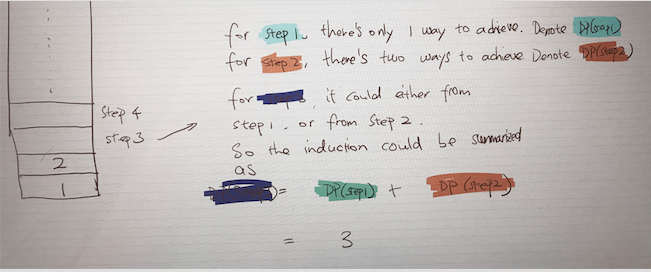 for step 1, there's only 1 way to achieve. Denote DP(step1)
for step 2, there's two ways to achieve Denote DP(step2)
for it could either from
step 1. or from step 2.
So the induction could be summarized
as
= DP(step1) + DP(step2)
= 3
step 4
step 3
2
1